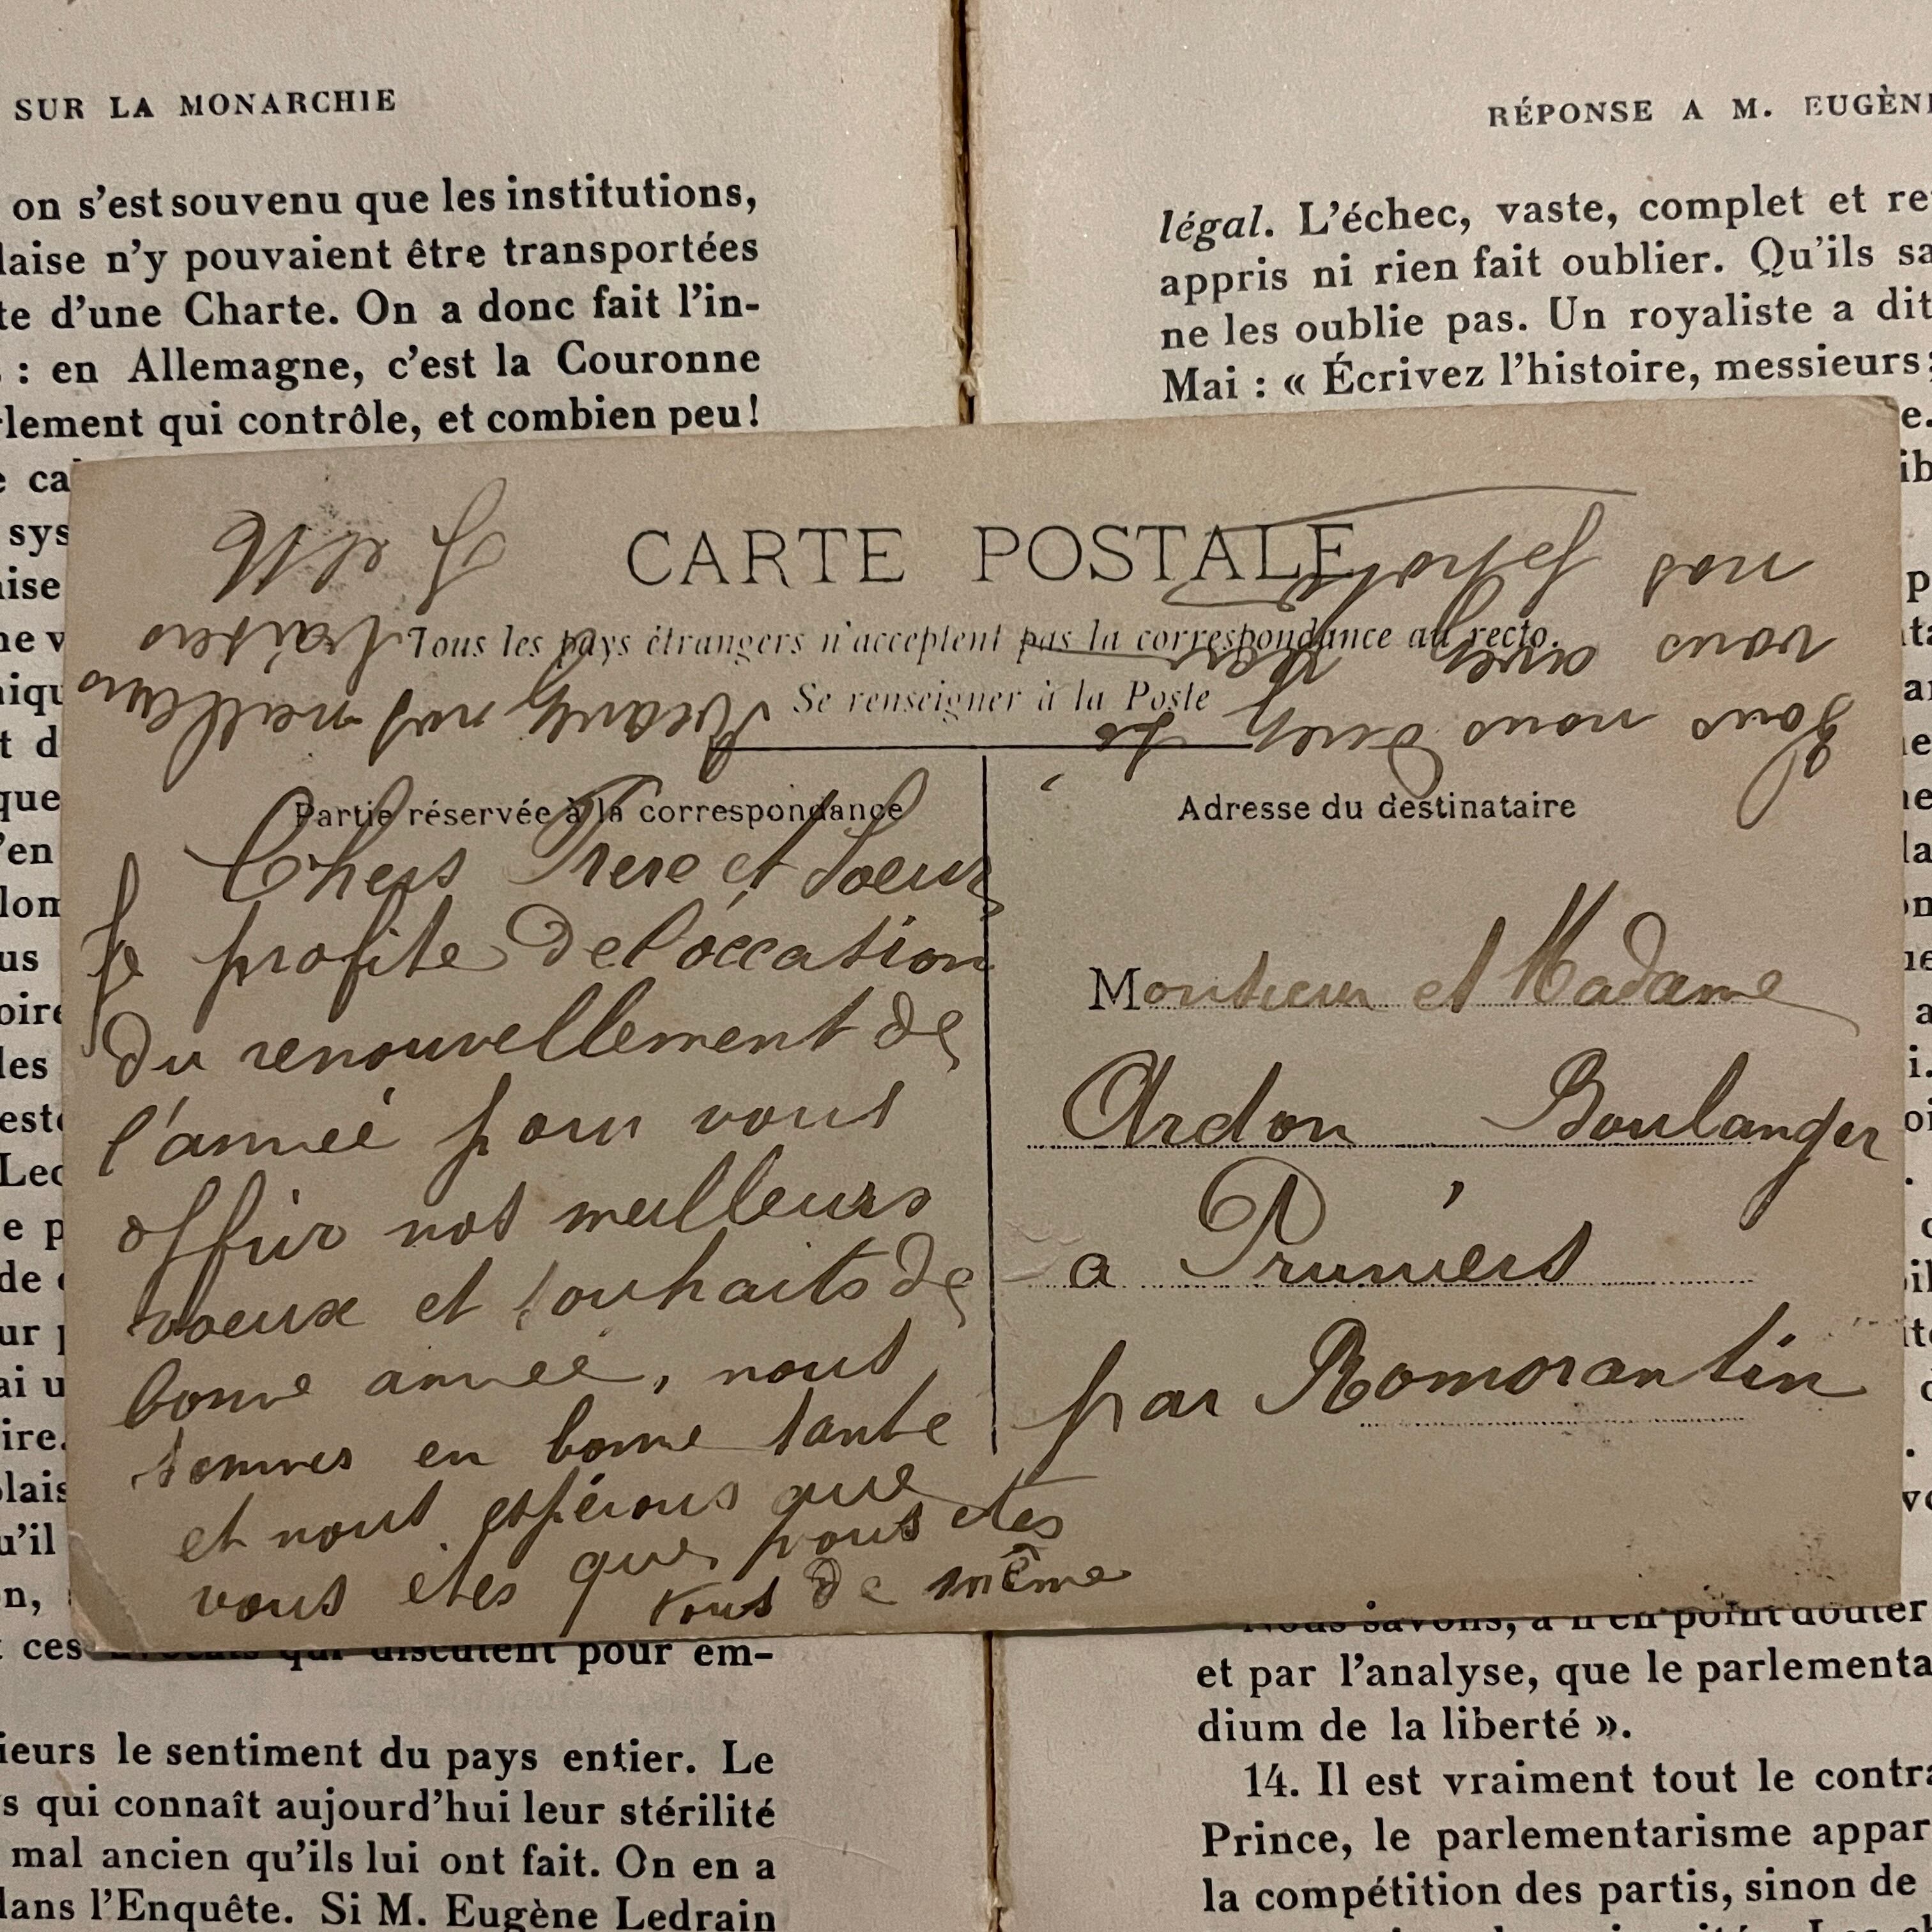 SUR LA MONARCHIE
on s'est souvenu que les institutions,
laise n'y pouvaient être transportées
te d'une Charte. On a donc fait l'in-
: en Allemagne, c'est la Couronne
rlement qui contrôle, et combien peu!
e ca
sys
aise
ne v
niqu
t d
que
'en
lon
us
oire
les
este
Led
e p
de
ur p
ai u
ire.
lais
u'il
on,
t ces avocats qui discutent pour em-
ieurs le sentiment du pays entier. Le
s qui connaît aujourd'hui leur stérilité
mal ancien qu'ils lui ont fait. On en a
dans l'Enquête. Si M. Eugène Ledrain
RÉPONSE A M. EUGÈNE
légal. L'échec, vaste, complet et re
appris ni rien fait oublier. Qu'ils sa
ne les oublie pas. Un royaliste a dit
Mai : « Écrivez l'histoire, messieurs;
e.
ib
CARTE POSTALE
Tous les pays étrangers n'acceptent pas la correspondance au recto.
Se renseigner à la Poste
Partie réservée à la correspondance
Chers Frere et Soeur
Je profite de l'occasion
du renouvellement de
l'année pour vous
offrir nos meilleurs
voeux et souhaits de
bonne année, nous
sommes en bonne sante
et nous espérons que
vous etes que vous etes
tous de même
Vous nous direz si
vous avez reçu
nos photos
Recevez nos meilleurs
baisers
Adresse du destinataire
Monsieur et Madame
Ardon Boulanger
a Pruniers
par Romorantin
Nous savons, à n'en point douter
et par l'analyse, que le parlementa
dium de la liberté ».
14. Il est vraiment tout le contra
Prince, le parlementarisme appar
la compétition des partis, sinon de